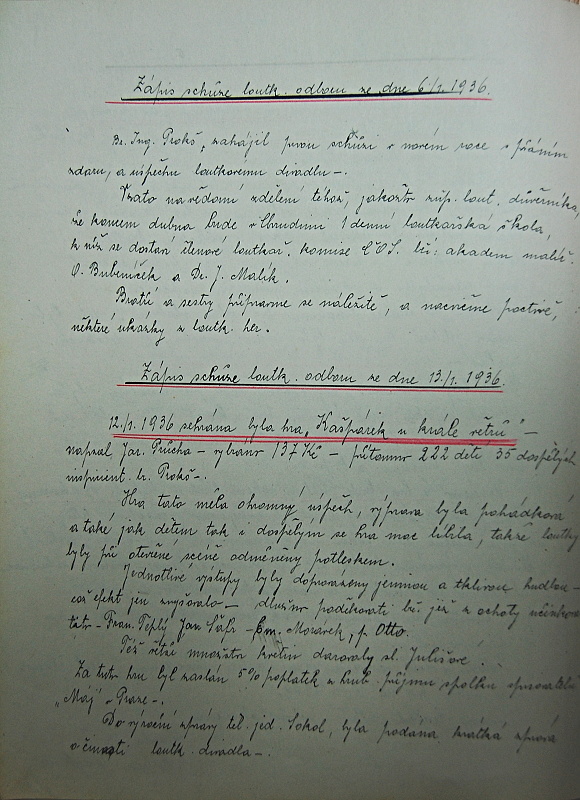 Zápis schůze loutk. odboru ze dne 6/1. 1936.
Br. Ing. Prokš, zahájil prvou schůzi v novém roce s přáním
zdaru, a úspěchu loutkovému divadlu –.
Vzato na vědomí sdělení téhož, jakožto žup. lout. důvěrníka,
že koncem dubna bude v Chrudimi 1 denní loutkářská škola,
k níž se dostaví členové loutkář. komise ČOS. bří: akadem malíř.
O. Bubeníček a Dr. J. Malík.
Bratří a sestry připravme se náležitě, a nacvičme poctivě,
některé ukázky z loutk. her.
Zápis schůze loutk. odboru ze dne 13./1. 1936.
12./1. 1936 sehrána byla hra „Kašpárek u krále větrů" –
napsal Jar. Průcha – vybráno 137 Kč – přítomno 222 dětí 35 dospělých
inspicient. br. Prokš –.
Hra tato měla ohromný úspěch, výprava byla pohádková
a také jak dětem tak i dospělým se hra moc líbila, takže loutky
byly při otevřené scéně odměněny potleskem.
Jednotlivé výstupy byly doprovázeny jemnou a tklivou hudbou –
což efekt jen zvyšovalo – dlužno poděkovati bří jež z ochoty účinkov.
Fran. Teplý Jar. Šafr – Em. Morávek, p. Otto.
Též větší množství květin darovaly sl. Julišové.
Za tuto hru byl zaslán 5% poplatek z hrub. příjmu spolku spisovatelů
„Máj" v Praze –.
Do výroční zprávy těl. jed. Sokol, byla podána krátká zpráva
o činnosti loutk. divadla –.